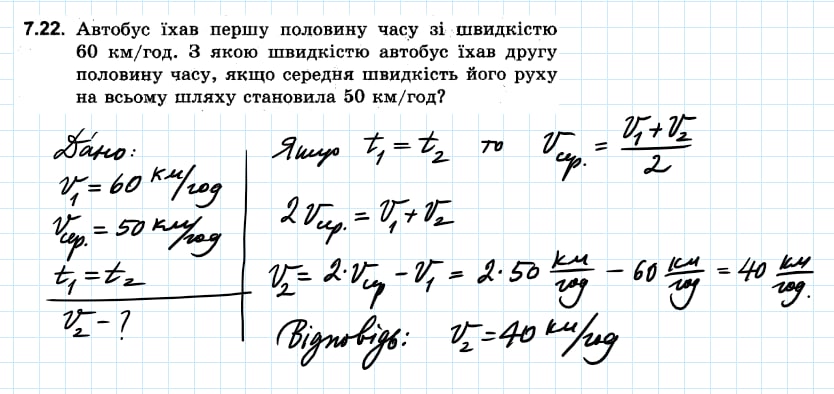 7.22. Автобус їхав першу половину часу зі швидкістю
60 км/год. З якою швидкістю автобус їхав другу
половину часу, якщо середня швидкість його руху
на всьому шляху становила 50 км/год?
Дано:
V₁ = 60 км/год
Vсер. = 50 км/год
t₁ = t₂
V₂ - ?
Якщо t₁ = t₂ то Vсер. = (V₁ + V₂)/2
2Vсер. = V₁ + V₂
V₂ = 2·Vсер - V₁ = 2·50 км/год - 60 км/год = 40 км/год.
Відповідь: V₂ = 40 км/год